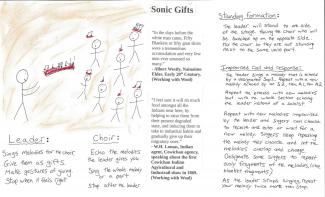 Sonic Gifts
"In the days before the
white man came, Fifty
Blankets or fifty goat skins
was a tremendous
accumulation and very few
men ever amassed so
many."
- Albert Westly, Nanaimo
Elder, Early 20th Century.
(Working with Wool)
"I feel sure it will do much
good amongst all the
Indians near here, by
helping to raise them from
their present degraded
state, and inducing them to
take to industrial habits and
gradually give up their
migratory ones."
- W.H. Lomas, Indian
agent, Cowichan agency,
speaking about the first
Cowichan Indian
Agricultural and
Industrial show in 1889.
(Working with Wool)
Leader:
Sings melodies for the choir
Give them as gifts
Make gestures of giving
Stop when it feels right
Choir:
Echo the melodies
the leader gives you
Sing the whole melody
or a part
Stop after the leader
Standing Formation:
The leader will stand to one side
of the stage, facing the choir who will
be bunched up on the opposite side.
The choir so they are not standing
next to the same voice part.
Improvised Call and Response:
The leader sings a melody that is echoed
by a designated Sop 1. Repeat with a new
melody echoed by
Repeat the process with new melodies
but with the whole section echoing
the leader instead of a soloist
Repeat with new melodies improvised
by the leader and singers can choose
to recieve and echo or wait for a
new melody. Singers keep repeating
the melody they choose and let the
melodies overlap and change.
Designate some singers to repeat
only fragments of the melodies (like
blanket fragments)
As the leader stops singers repeat
your melody twice more then stop.